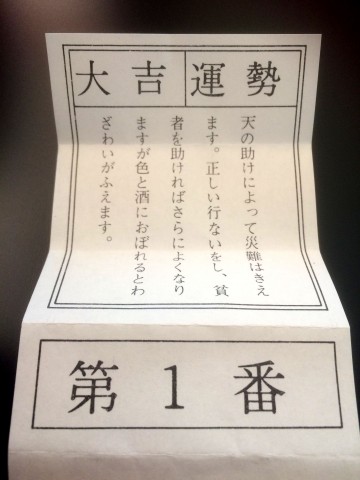 運勢 大吉
天の助けによって災難はきえ
ます。正しい行ないをし、貧
者を助ければさらによくなり
ますが色と酒におぼれるとわ
ざわいがふえます。
第1番